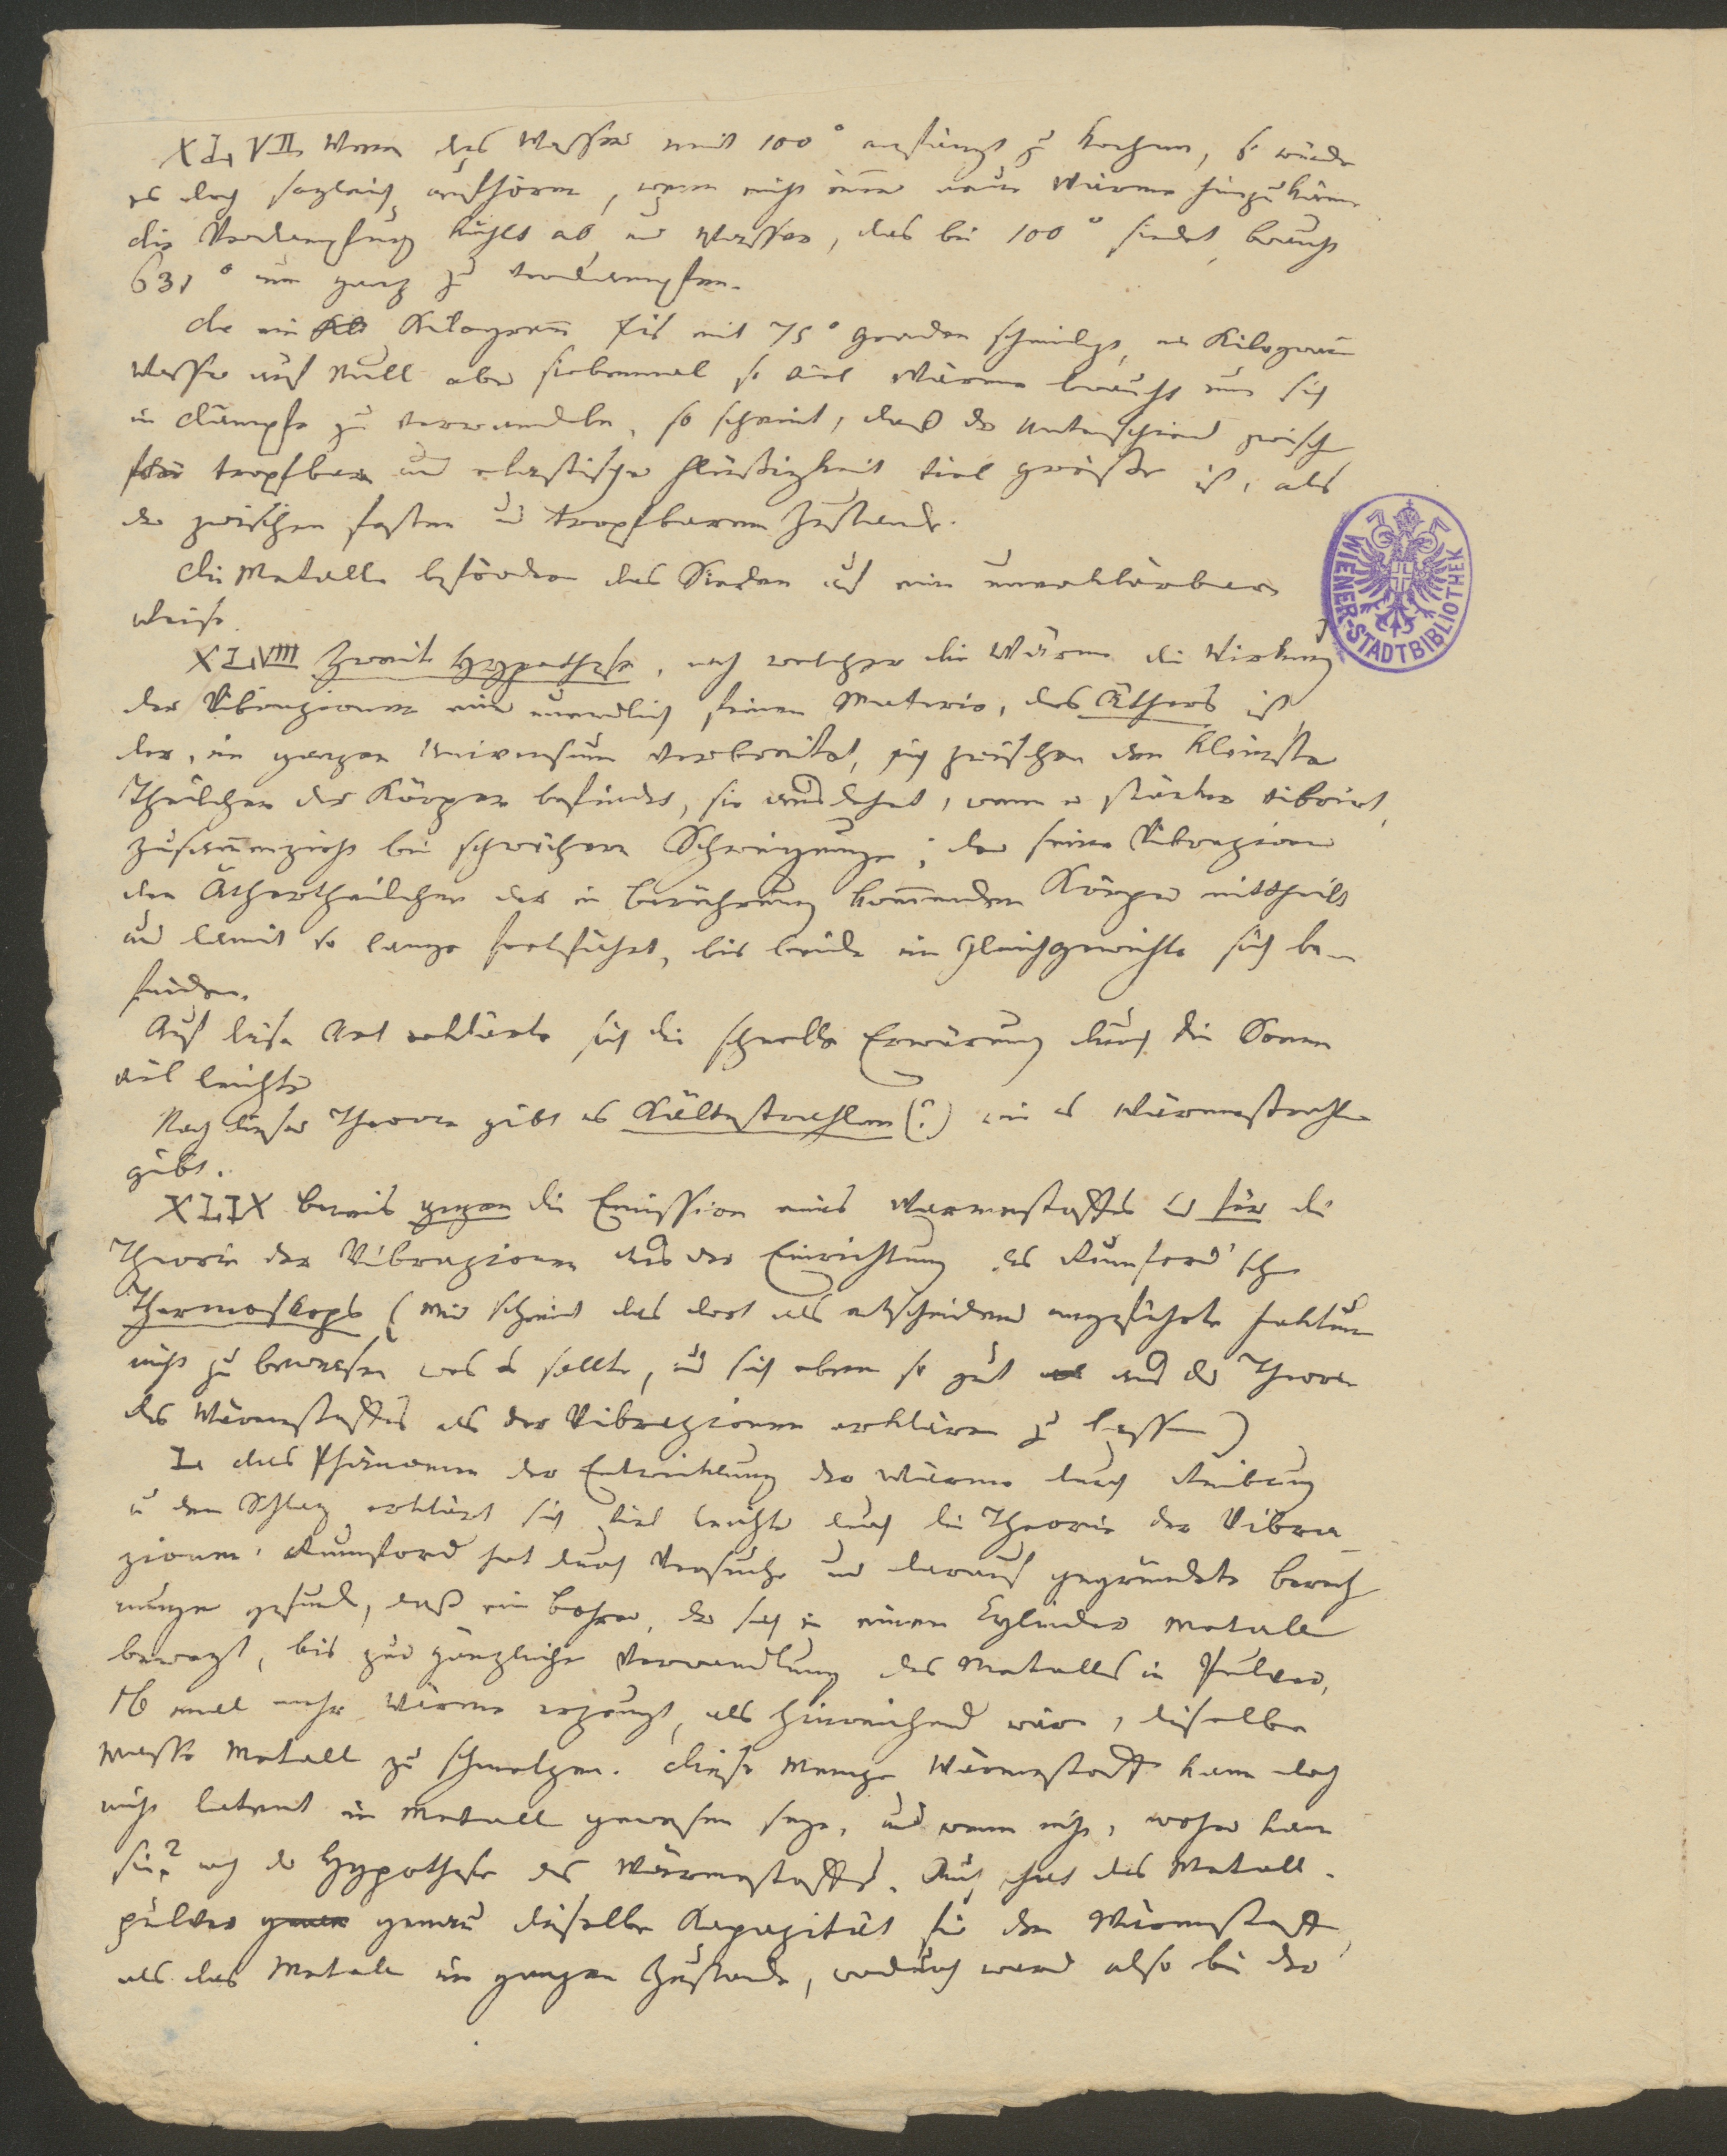 XLVII Wenn das Wasser mit 100° anfängt zu kochen, so würde
es doch sogleich aufhören, wenn nicht immer neue Wärme hinzukäme
die Verdampfung kühlt ab und Wasser, das bei 100° siedet, braucht
631° um ganz zu verdampfen.
Da ein Kilogramm Eis mit 75° Graden schmilzt, ein Kilogramm
Wasser auf Null aber siebenmal so viel Wärme braucht um sich
in Dämpfe zu verwandeln, so scheint, daß der Unterschied zwischen
tropfbarer und elastischer Flüßigkeit viel größer ist, als
der zwischen festen und tropfbarem Zustande.
Die Metalle befördern das Sieden auf eine unerklärbare
Weise.
XLVIII Zweite Hypothese, nach welcher die Wärme die Wirkung
der Vibrazionen einer unendlich feinen Materie, des Äthers ist
der, im ganzen Universum verbreitet, sich zwischen den kleinsten
Theilchen der Körper befindet, sie ausdehnt, wenn er stärker vibrirt,
zusammenzieht bei schwächern Schwingungen; der seine Vibrazionen
den Äthertheilchen der in Berührung kommenden Körper mittheilt
und damit so lange fortfährt, bis beide im Gleichgewichte sich be-
finden.
Auf diese Art erklärte sich die schnelle Erwärmung durch die Sonne
viel leichter
Nach dieser Theorie gibt es Kältestrahlen (?) wie es Wärmestrahlen
gibt.
XLIX Beweis gegen die Emission eines Wärmestoffes u für die
Theorie der Vibrazionen aus der Einrichtung des Rumford'schen
Thermoskops (mir scheint das dort als entscheidend angeführte Faktum
nicht zu beweisen was es sollte, und sich eben so gut aus der Theorie
des Wärmestoffes als der Vibrazionen erklären zu lassen)
L das Phänomen der Entwicklung der Wärme durch Reibung
u den Schlag erklärt sich viel leichter durch die Theorie der Vibra-
zionen. Rumford hat durch Versuche und darauf gegründete Berech
nungen gefunden, daß ein Bohrer, der sich in einem Cylinder Metall
bewegt, bis zur gänzlichen Verwandlung des Metalls in Pulver,
16 mal mehr Wärme erzeugt, als hinreichend wäre, dieselbe
Masse Metall zu schmelzen. Diese Menge Wärmestoff kann doch
nicht latent im Metall gewesen seyn, und wenn nicht, woher kam
sie? nach der Hypothese des Wärmestoffes. Auch hat das Metall-
pulver genau dieselbe Kapazität für den Wärmestoff,
als das Metall im ganzen Zustande, wodurch ward also bei der
WIENER-STADTBIBLIOTHEK